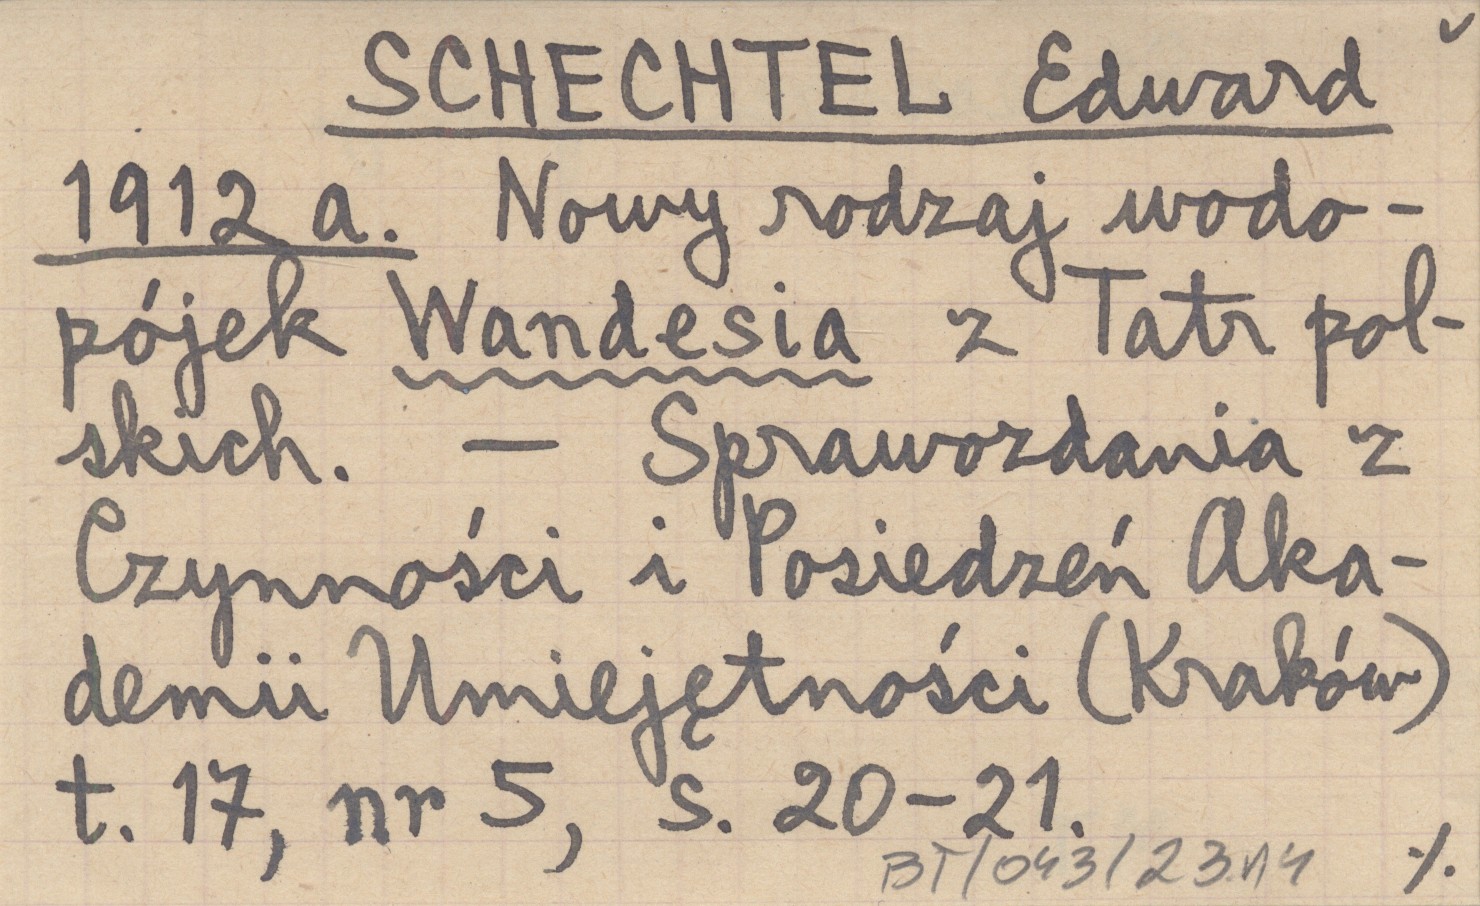 SCHECHTEL Edward
1912 a. Nowy rodzaj wodo-
pójek Wandesia z Tatr pol-
skich. — Sprawozdania z
Czynności i Posiedzeń Aka-
demii Umiejętności (Kraków)
t. 17, nr 5, s. 20-21.
BT/043/23.